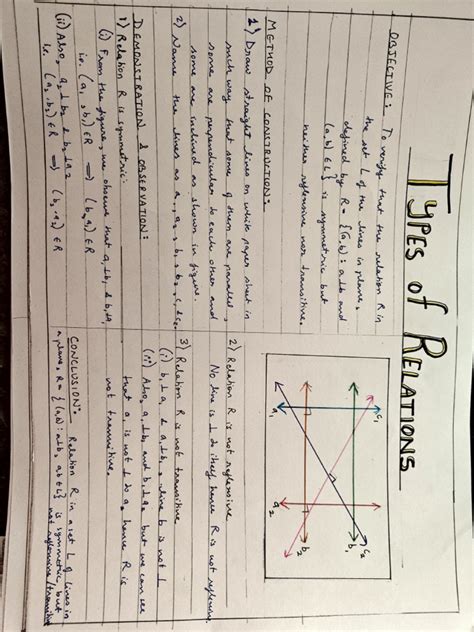 TYPES of RELATIONS
OBJECTIVE: To verify that the relation R in
the set L of the lines in plane,
defined by R = {(a,b): a⊥b and
(a,b) ∈ L} is symmetric but
neither reflexive nor transitive.
METHOD OF CONSTRUCTION:
1) Draw straight lines on white paper sheet in
such way that some of them are parallel,
some are perpendicular to each other and
some are inclined as shown in figure.
2) Name the lines as a₁, a₂, b₁, b₂, c₁, c₂.
DEMONSTRATION & OBSERVATION:
1) Relation R is symmetric:
(i) From the figure, we observe that a₁⊥b₁ & b₁⊥a₁
i.e. (a₁, b₁) ∈ R ⟹ (b₁, a₁) ∈ R
(ii) Also, a₂⊥b₂ & b₂⊥a₂
i.e. (a₂, b₂) ∈ R ⟹ (b₂, a₂) ∈ R
c₁
a₁
b₁
c₂
a₂
b₂
2) Relation R is not reflexive
No line is ⊥ to itself hence R is not reflexive
3) Relation R is not transitive
(i) b₁⊥a₁ & a₁⊥b₂, line b is not ⊥
(ii) Also, a₁⊥b₂ and b₂⊥a₂ but we can see
that a₁ is not ⊥ to a₂ hence R is
not transitive.
CONCLUSION: Relation R in a set L of lines in
a plane, R = {(a,b): a⊥b, a,b ∈ L} is symmetric but
not reflexive/transitive